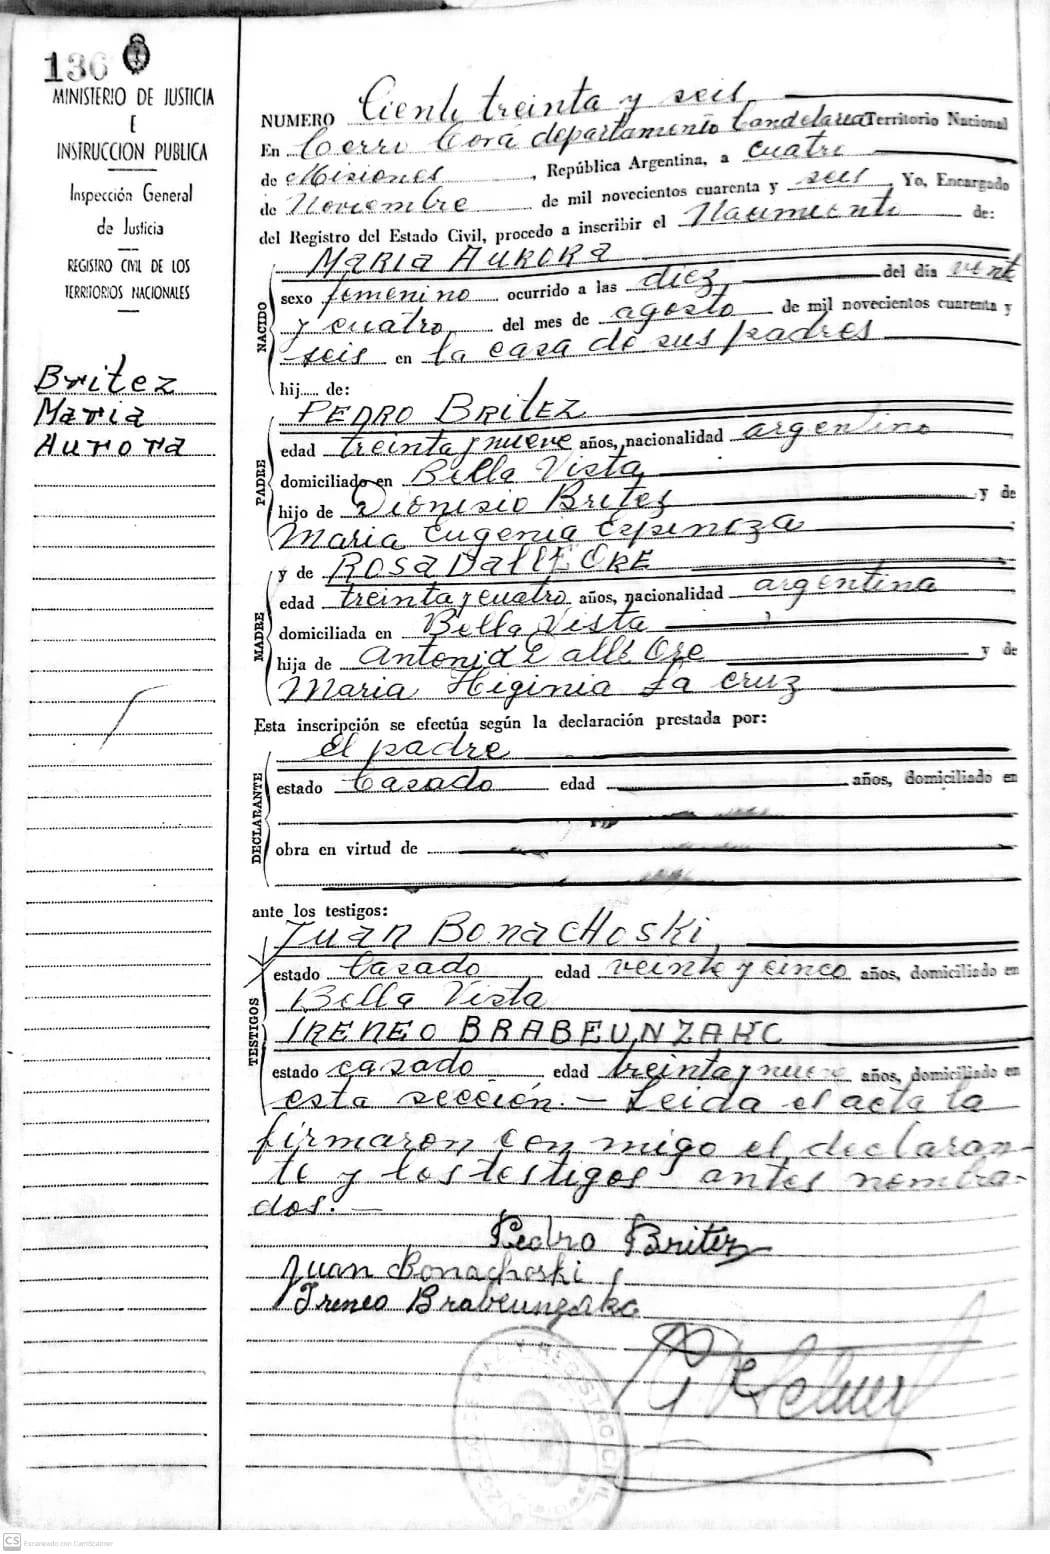 136
MINISTERIO DE JUSTICIA
E
INSTRUCCION PUBLICA
Inspección General
de Justicia
REGISTRO CIVIL DE LOS
TERRITORIOS NACIONALES
Britez
Maria
Aurora
NUMERO Ciento treinta y seis
En Cerro Corá departamento Candelaria Territorio Nacional
de Misiones, República Argentina, a cuatro
de Noviembre de mil novecientos cuarenta y seis, Yo, Encargado
del Registro del Estado Civil, procedo a inscribir el Nacimiento de:
NACIDO
MARIA AURORA
sexo femenino ocurrido a las diez del día veinti
y cuatro, del mes de agosto de mil novecientos cuarenta y
seis en la casa de sus padres
hij de:
PADRE
PEDRO BRITEZ
edad treinta y nueve años, nacionalidad argentino
domiciliado en Bella Vista
hijo de Dionisio Britez y de
Maria Eugenia Espinoza
MADRE
y de ROSA DALLE ORE
edad treinta y cuatro años, nacionalidad argentina
domiciliada en Bella Vista
hija de Antonio Dalle Ore y de
Maria Higinia La Cruz
Esta inscripción se efectúa según la declaración prestada por:
DECLARANTE
el padre
estado Casado edad años, domiciliado en
obra en virtud de
ante los testigos:
TESTIGOS
JUAN BONACHOSKI,
estado Casado edad veinte y cinco años, domiciliado en
Bella Vista
IRENEO BRABEUNZAKC
estado casado edad treinta y nueve años, domiciliado en
esta sección.- Leida el acta la
firmaron con migo el declaran-
te y los testigos antes nombra-
dos.-
Pedro Britez
Juan Bonachoski
Ireneo Brabeunzakc
REGISTRO CIVIL
CS Escaneado con CamScanner